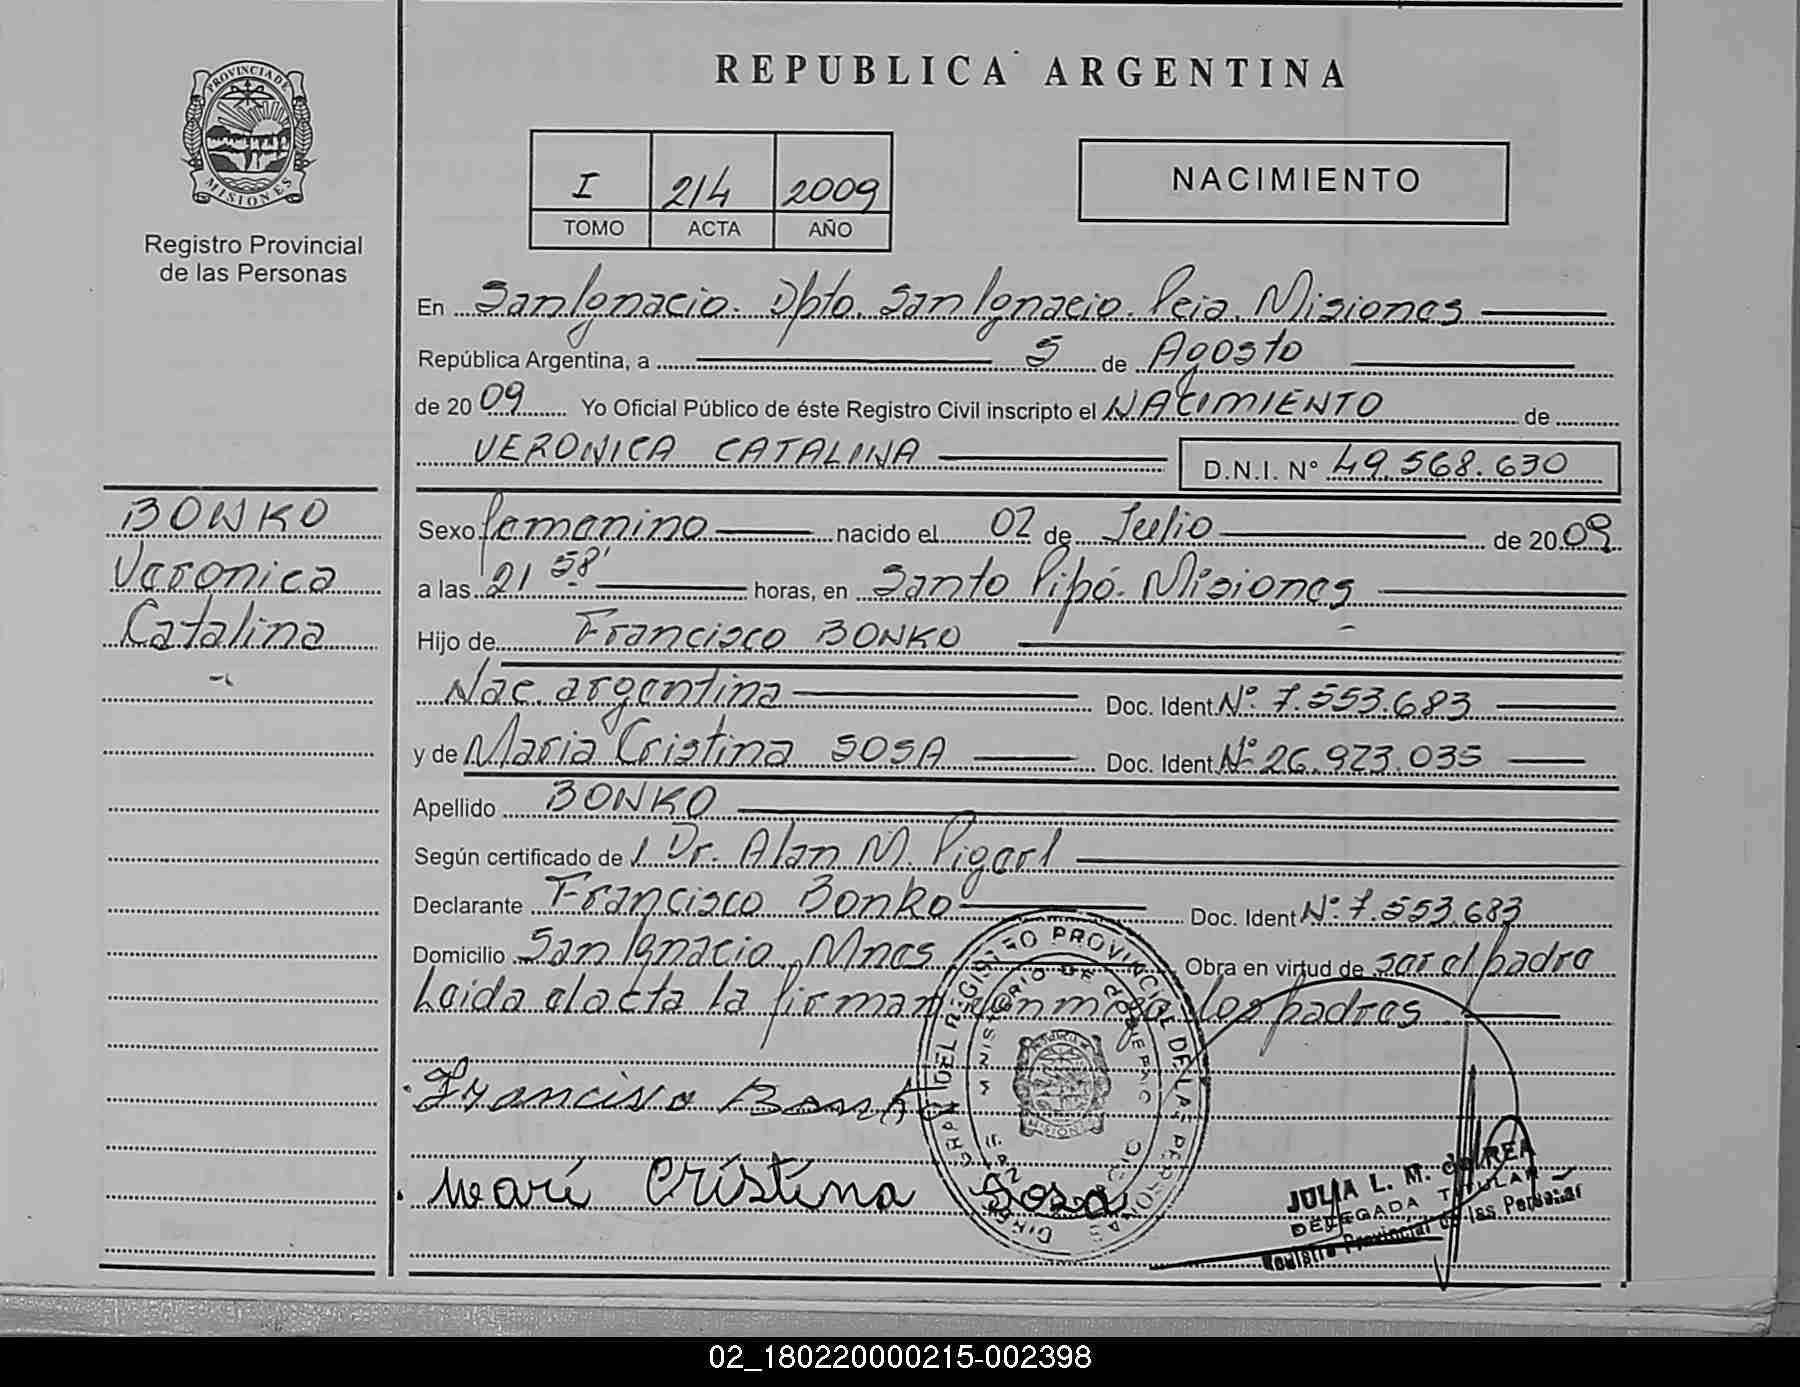 PROVINCIA DE
MISIONES
Registro Provincial
de las Personas
REPUBLICA ARGENTINA
I 214 2009
TOMO ACTA AÑO
NACIMIENTO
En San Ignacio. Dpto. San Ignacio. Pcia. Misiones
República Argentina, a 5 de Agosto
de 2009 Yo Oficial Público de éste Registro Civil inscripto el NACIMIENTO de
VERONICA CATALINA D.N.I. N° 49.568.630
BONKO
Veronica
Catalina
Sexo femenino nacido el 02 de Julio de 2009
a las 21 58' horas, en Santo Pipó. Misiones
Hijo de Francisco BONKO
Nac. argentina Doc. Ident Nº 7.553.683
y de Maria Cristina SOSA Doc. Ident Nº 26.923.035
Apellido BONKO
Según certificado de Dr. Alan M.
Declarante Francisco Bonko Doc. Ident Nº 7.553.683
Domicilio San Ignacio Mnes Obra en virtud de ser el padre
Leida el acta la firman los padres.
Francisco Bonko
Mari Cristina Sosa
DEL REGISTRO PROVINCIAL DE LAS PERSONAS
MINISTERIO DE GOBIERNO
MISIONES
JULIA L. M. de REA
DELEGADA TITULAR
Registro Provincial de las Personas
02_180220000215-002398